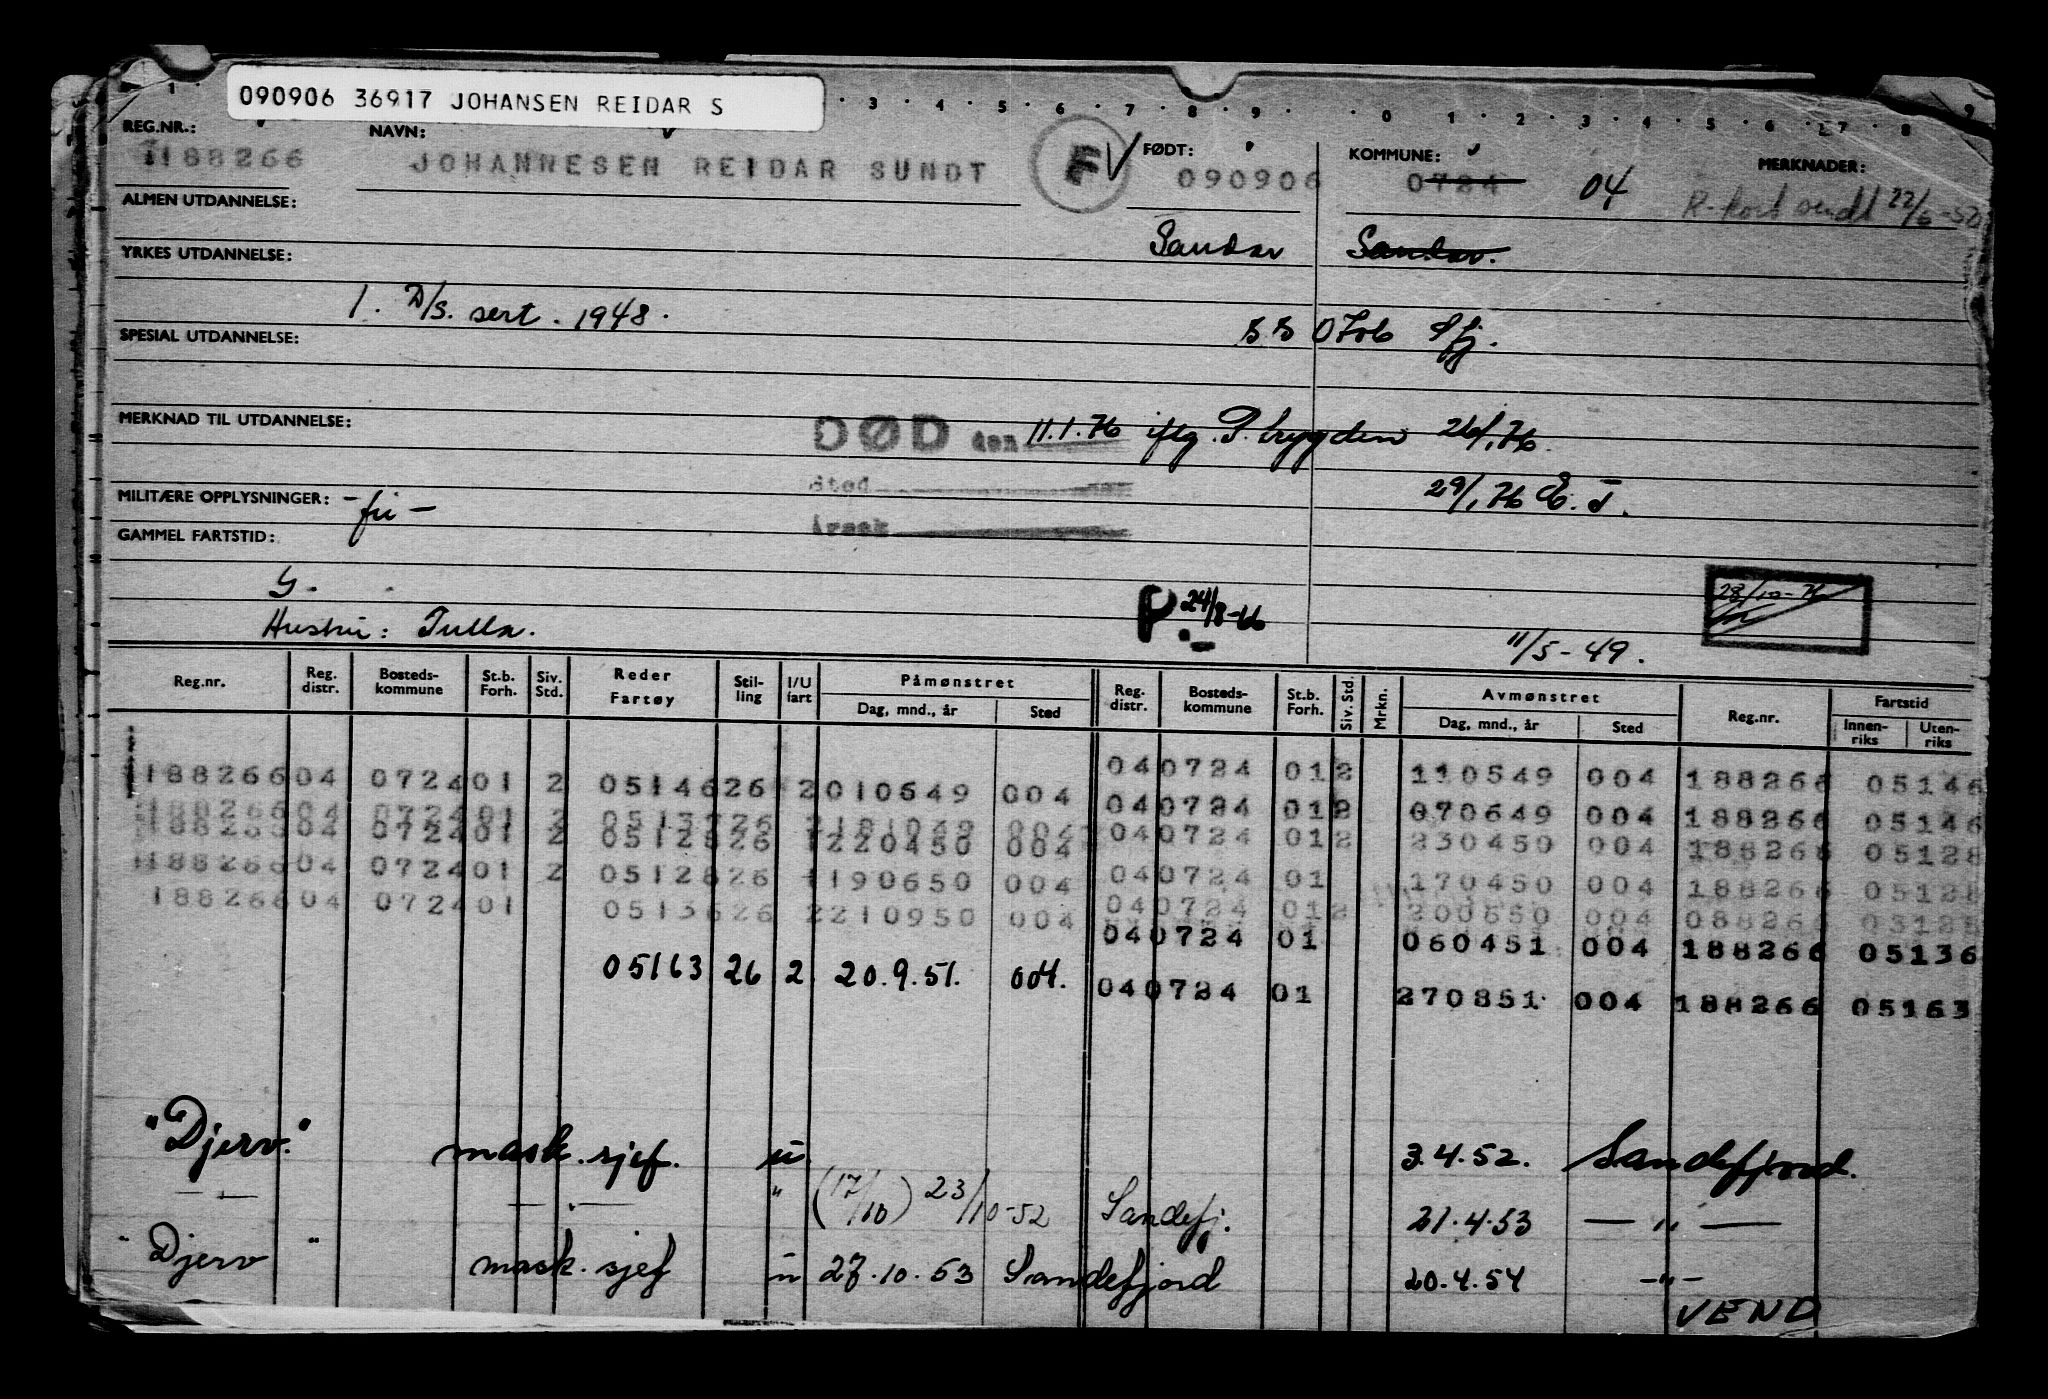 090906 36917 JOHANSEN REIDAR S
1 · 3 · 4 · 5 · 6 · 7 · 8 · 9 · · 0 · 1 · 2 · 3 · 4 · 5 · 6 · 7 · 8 9
REG.NR.: NAVN: FØDT: KOMMUNE: MERKNADER:
1188266 JOHANNESEN REIDAR SUNDT F V 090906 0724 04 R-kort sendt 22/6-52
ALMEN UTDANNELSE:
Sandar Sandar.
YRKES UTDANNELSE:
1. D/S. sert. 1948.
SPESIAL UTDANNELSE:
MERKNAD TIL UTDANNELSE:
DØD den 11.1.76 iflg. P. trygden 26/1.76.
Sted
29/1.76 E. T.
MILITÆRE OPPLYSNINGER: - fri -
Årsak
GAMMEL FARTSTID:
G.
P. 24/8-66
28/10-76
Hustru: Tulla.
11/5-49.
Reg.nr. Reg. distr. Bosteds-kommune St.b. Forh. Siv. Std. Reder Fartøy Stil-ling I/U fart Påmønstret Dag, mnd., år Sted Reg. distr. Bosteds-kommune St.b. Forh. Siv. Std. Mrkn. Avmønstret Dag, mnd., år Sted Reg.nr. Fartstid Innen-riks Uten-riks
188266 04 0724 01 2 05146 26 2 010649 004 04 0724 01 2 110549 004 188266 05146
188266 04 0724 01 2 26 004 04 0724 01 2 070649 004 188266 05146
04 0724 01 2 05128 26 1 220450 004 04 0724 01 2 230450 004 188266 05128
188266 04 0724 01 2 05128 26 1 190650 004 04 0724 01 170450 004 188266 05128
188266 04 0724 01 05136 26 2 210950 004 04 0724 01 2 200650 004 088266
04 0724 01 060451 004 188266 05136
05163 26 2 20.9.51. 004. 04 0724 01 270851 004 188266 05163
"Djerv." mask. sjef. u. 3.4.52. Sandefjord.
— — — . — " (17/10) 23/10-52 Sandefj. 21.4.53 — " —
"Djerv" mask. sjef u 27.10.53 Sandefjord 20.4.54 - " -
VEND